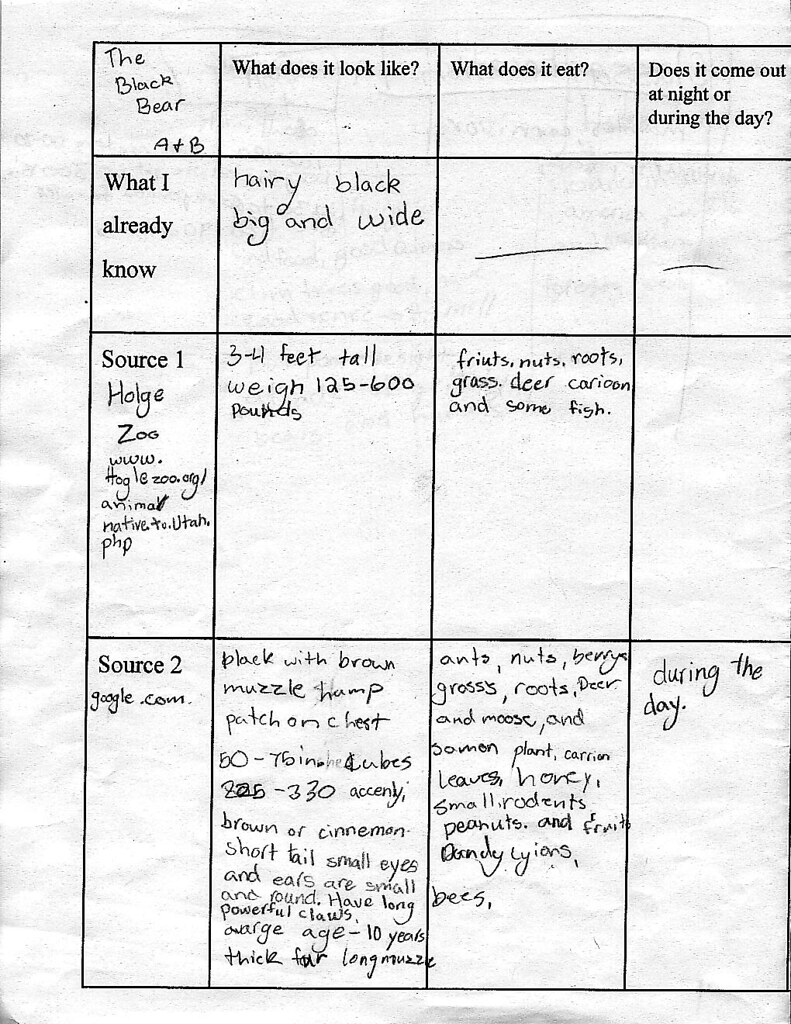 The
Black
Bear
A+B
What does it look like?
What does it eat?
Does it come out
at night or
during the day?
What I
already
know
hairy black
big and wide
Source 1
Holge
Zoo
www.
Hoglezoo.org/
animal
native.to.Utah.
php
3-4 feet tall
weigh 125-600
pounds
friuts, nuts, roots,
grass. deer carioon
and some fish.
Source 2
google.com.
black with brown
muzzle
patch on chest
50-75in. cubes
-330
brown or cinnemon.
short tail small eyes
and ears are small
and round. Have long
powerful claws.
avarge age-10 years
thick fur longmuzzle
ants, nuts, berrys
grosss, roots, Deer
and moose, and
somon plant, carrion
leaves, honey,
small, rodents
peanuts. and fruits
Dandy Lyions,
bees,
during the
day.